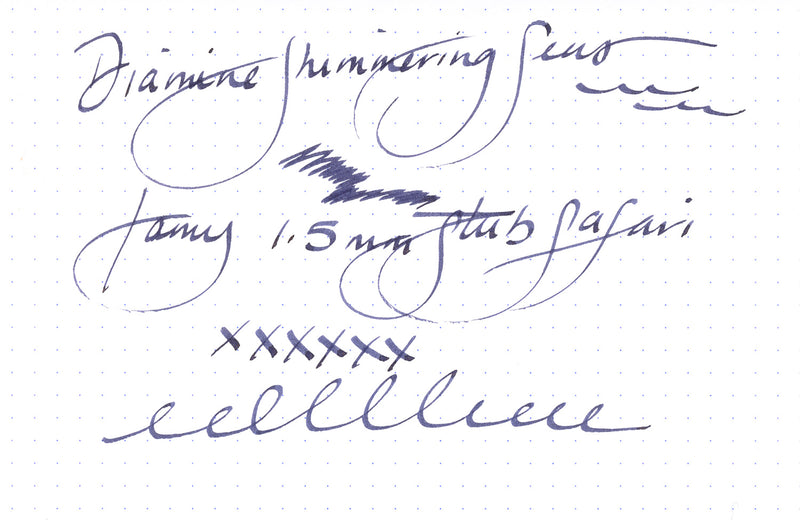 Diamine Shimmering Seas
Lamy 1.5 mm Stub Safari
xxxxxx